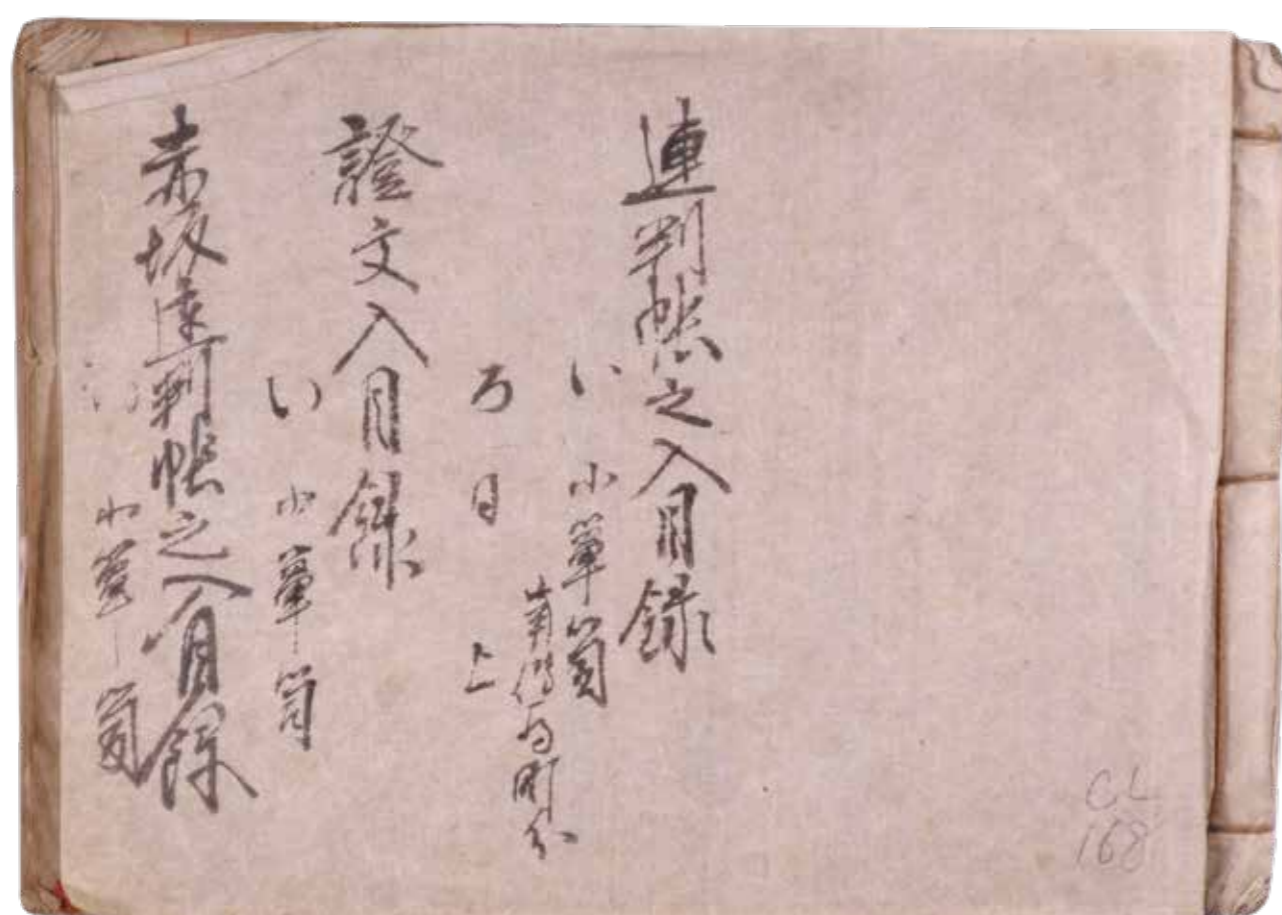 連判帳之入目録
い 小簞笥
南伝馬町分
ろ 同 上
證文入目録
い 小簞笥
赤坂連判帳之入目録
小簞笥
CL
168